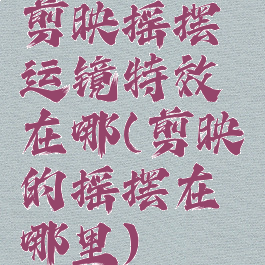 剪映摇摆
运镜特效
在哪(剪映
的摇摆在
哪里)